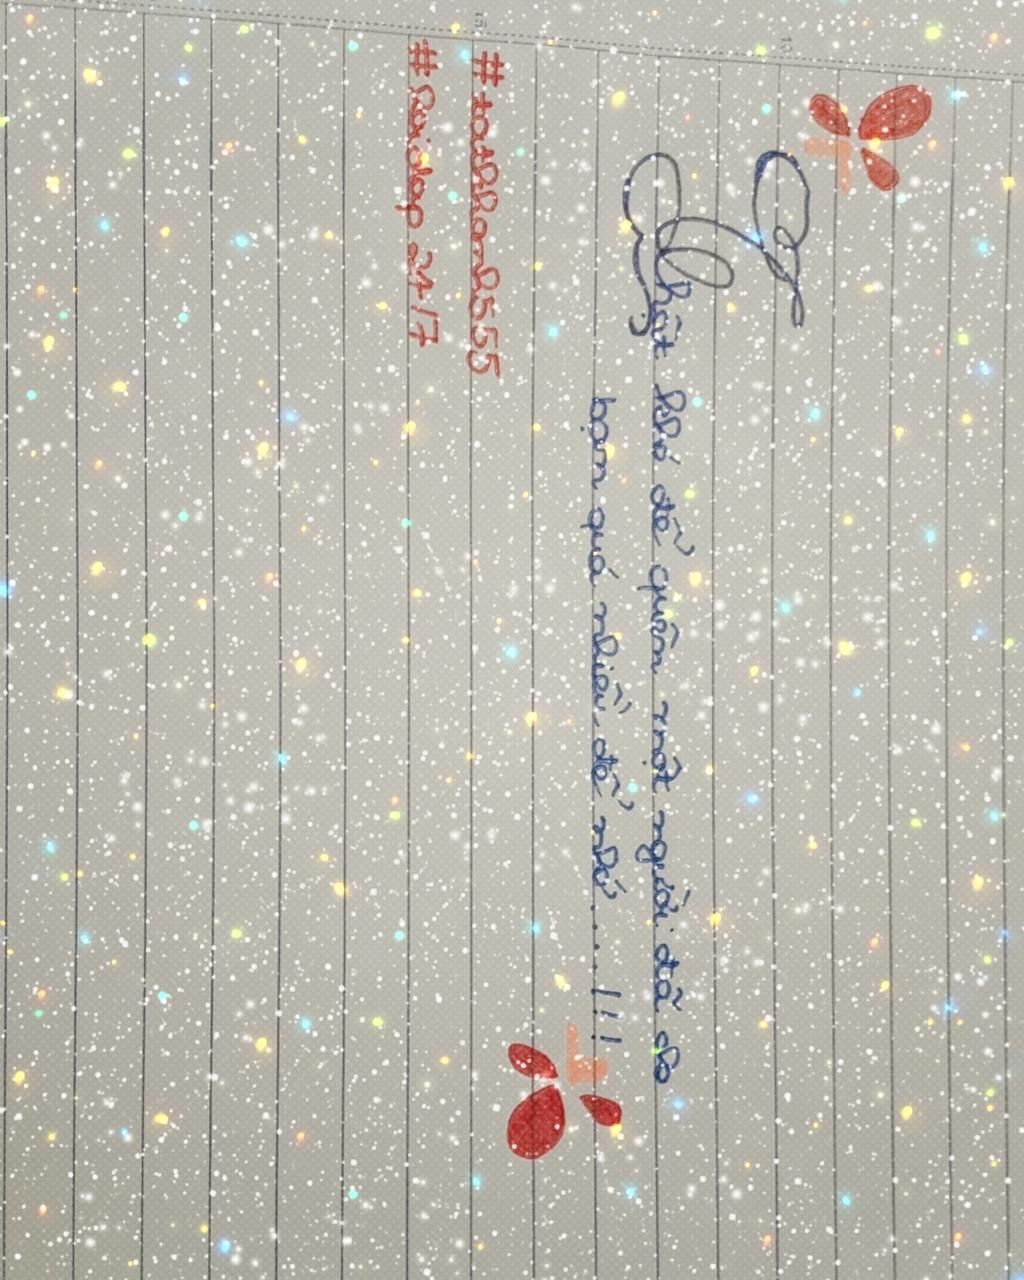 Thật khó để quên một người đã cho
bạn quá nhiều để nhớ.....!!!
#hoidap 24/7